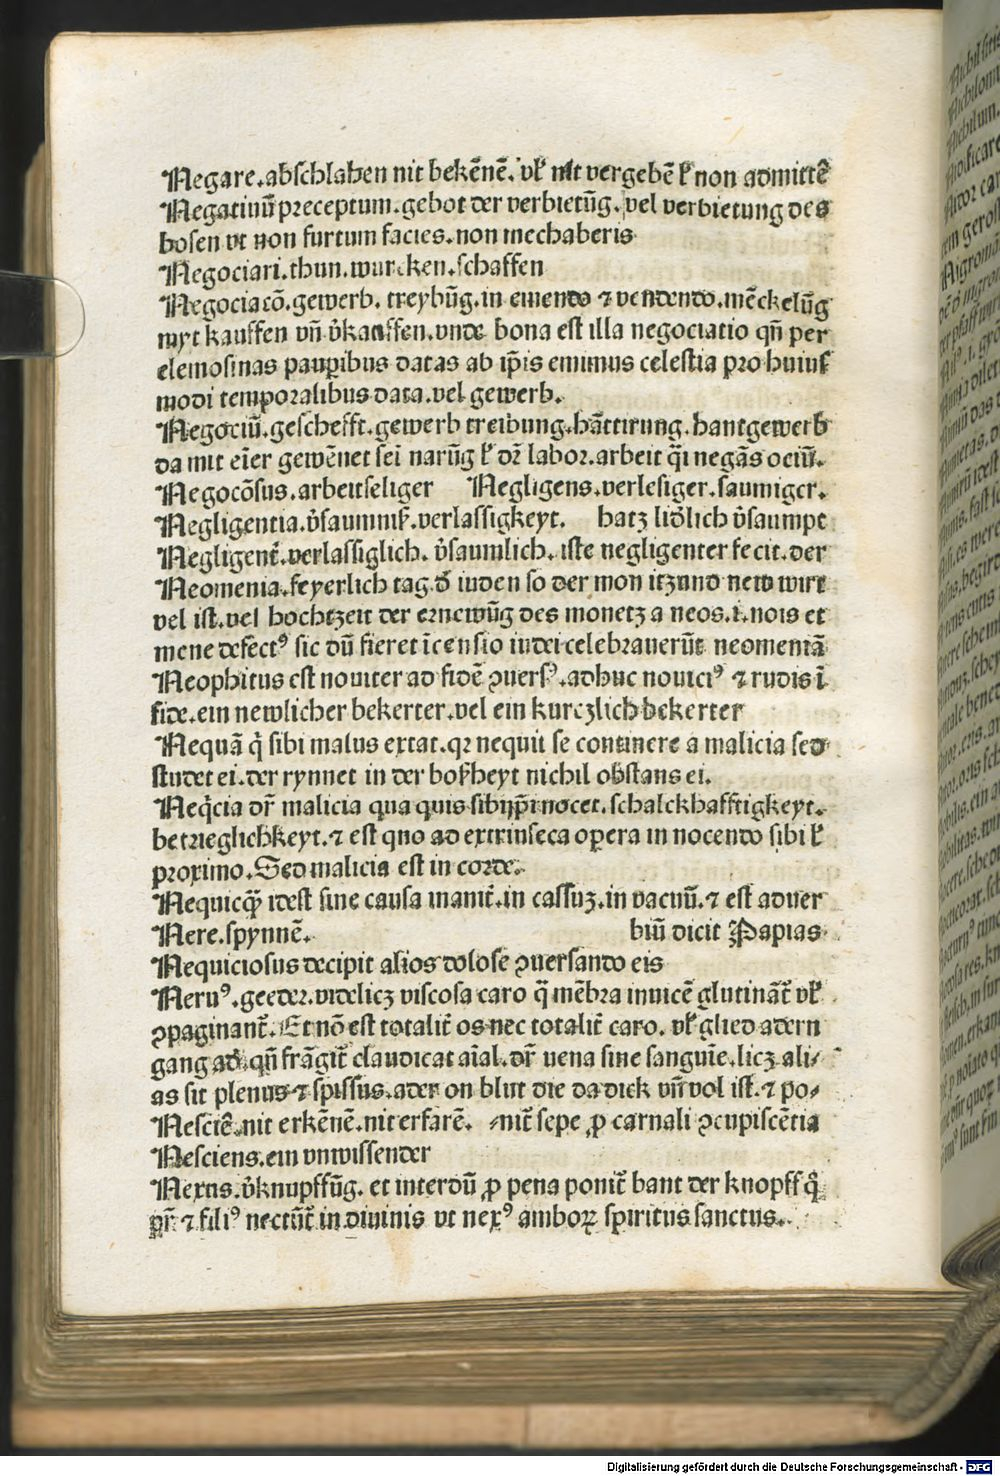 Negare.abschlahen nit bekēnē. vł nit vergebē ł non admittē
Negatiuū preceptum.gebot der verbietūg.vel verbietung des
bosen vt non furtum facies.non mechaberis
Negociari.thun.wurcken.schaffen
Negociacō.gewerb. treybūg.in emendo ⁊ vendendo.mēckelūg
myt kauffen vn̄ v̓kauffen.vnde bona est illa negociatio qn̄ per
elemosinas pauꝑibus datas ab ip̄is emimus celestia pro huius
modi temporalibus data.vel gewerb.
Negociū.geschefft.gewerb treibung.hāttirung.hantgewerb
da mit eīer gewēnet sei narūg ł dr̄ labor.arbeit q̄i negās ociū.
Negocōsus.arbeitseliger Negligens.verlesiger.saumiger.
Negligentia.v̓saummß.verlassigkeyt. hatz lid̓lich v̓saumpt
Negligent̄.verlassiglich. v̓saumlich. iste negligenter fecit.der
Neomenia.feyerlich tag.d̓ iuden so der mon itzund new wirt
vel ist.vel hochtzeit der ernewūg des monetz a neos.i.nois et
mene defectꝰ sic dū fieret īcensio iudei celebrauerūt neomeniā
Neophitus est nouiter ad fidē ꝯuersꝰ.adhuc nouiciꝰ ⁊ rudis ī
fide.ein newlicher bekerter.vel ein kurczlich bekerter
Nequā q̇ sibi malus extat.qꝛ nequit se continere a malicia sed
studet ei.der rynnet in der boßheyt nichil obstans ei.
Neq̇cia dr̄ malicia qua quis sibijp̄i nocet.schalckhafftigkeyt.
betrieglichkeyt.⁊ est qno ad extrinseca opera in nocendo sibi ł
proximo.Sed malicia est in corde.
Nequicq̄ꝫ idest sine causa inanit̄.in cassuꝫ.in vacuū.⁊ est aduer
Nere.spynnē. biū dicit Papias
Nequiciosus decipit alios dolose ꝯuersando eis
Neruꝰ.geeder.videlicꝫ viscosa caro q̄ mēbra inuicē glutināt vł
ꝯpaginant̄. Et nō est totalit̄ os nec totalit̄ caro. vł glied adern
gang ad̓.qn̄ frāgit̄ claudicat aīal.dr̄ uena sine sanguīe.licꝫ ali⸗
as sit plenus ⁊ spissus.ader on blut die da dick vn̄ vol ist.⁊ po⸗
Nesciē.nit erkēnē.nit erfarē. ⸗nit̄ sepe ꝓ carnali ꝯcupiscētia
Nesciens.ein vnwissender
Nexus.v̓knupffūg. et interdū ꝓ pena ponit̄ bant der knopff q̇
pr̄ ⁊ filiꝰ nectūt̄ in diuinis vt nexꝰ amboꝝ spiritus sanctus.
Digitalisierung gefördert durch die Deutsche Forschungsgemeinschaft - DFG